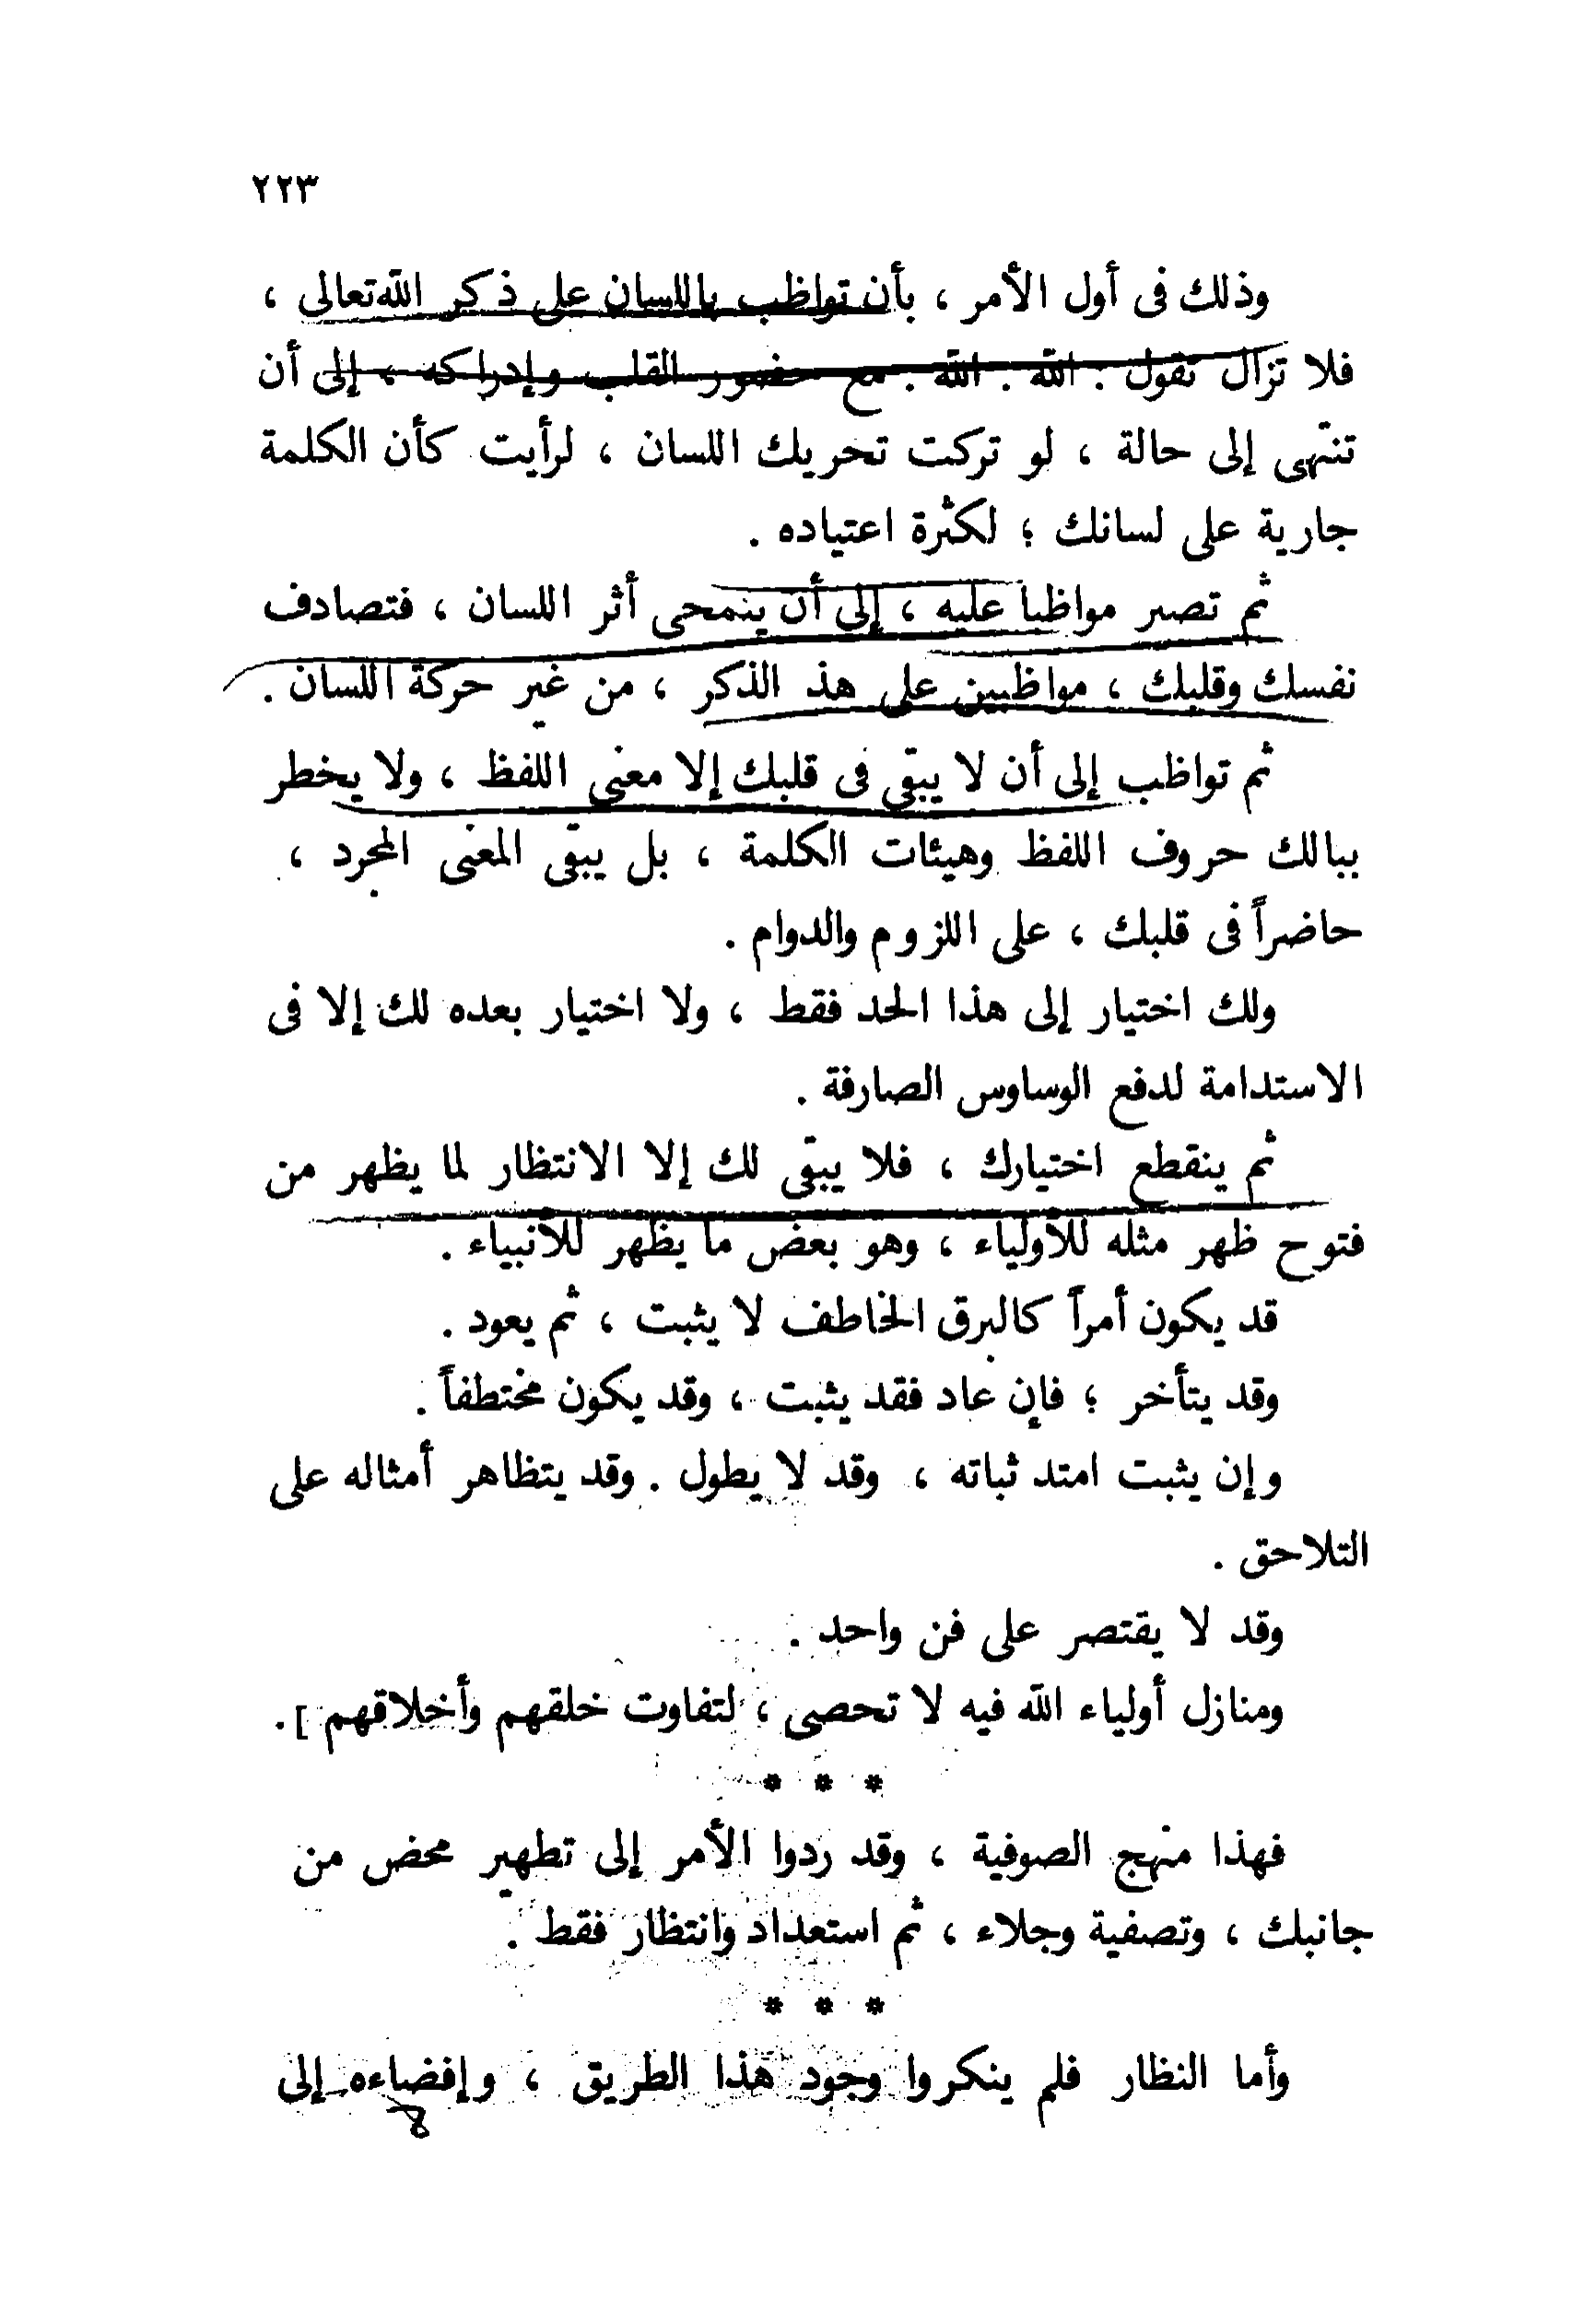 ٢٢٣
وذلك فى أول الأمر ، بأن تواظب باللسان على ذكر الله تعالى ،
فلا تزال تقول : الله . الله . مع حضور القلب وإدراكه ، إلى أن
تنتهى إلى حالة ، لو تركت تحريك اللسان ، لرأيت كأن الكلمة
جارية على لسانك ؛ لكثرة اعتياده .
ثم تصير مواظبا عليه ، إلى أن ينمحى أثر اللسان ، فتصادف
نفسك وقلبك ، مواظبين على هذ الذكر ، من غير حركة اللسان .
ثم تواظب إلى أن لا يبقى فى قلبك إلا معنى اللفظ ، ولا يخطر
ببالك حروف اللفظ وهيئات الكلمة ، بل يبقى المعنى المجرد ،
حاضراً فى قلبك ، على اللزوم والدوام .
ولك اختيار إلى هذا الحد فقط ، ولا اختيار بعده لك إلا فى
الاستدامة لدفع الوساوس الصارفة .
ثم ينقطع اختيارك ، فلا يبقى لك إلا الانتظار لما يظهر من
فتوح ظهر مثله للأولياء ، وهو بعض ما يظهر للأنبياء .
قد يكون أمراً كالبرق الخاطف لا يثبت ، ثم يعود .
وقد يتأخر ؛ فإن عاد فقد يثبت ، وقد يكون مختطفاً .
وإن يثبت امتد ثباته ، وقد لا يطول . وقد يتظاهر أمثاله على
التلاحق .
وقد لا يقتصر على فن واحد .
ومنازل أولياء الله فيه لا تحصى ، لتفاوت خلقهم وأخلاقهم ] .
* * *
فهذا منهج الصوفية ، وقد ردوا الأمر إلى تطهير محض من
جانبك ، وتصفية وجلاء ، ثم استعداد وانتظار فقط .
* * *
وأما النظار فلم ينكروا وجود هذا الطريق ، وإفضاءه إلى